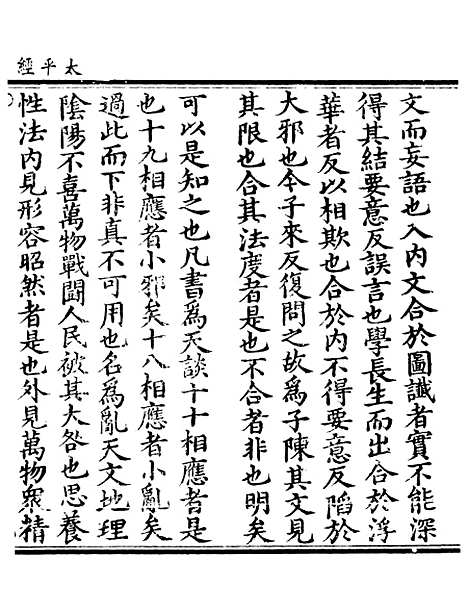 太平經
文而妄語也入內文合於圖讖者實不能深
得其結要意反誤言也學長生而出合於浮
華者反以相欺也合於內不得要意反陷於
大邪也今子來反復問之故為子陳其文見
其限也合其法度者是也不合者非也明矣
可以是知之也凡書為天談十十相應者是
也十九相應者小邪矣十八相應者小亂矣
過此而下非真不可用也名為亂天文地理
陰陽不喜萬物戰鬭人民被其大咎也思養
性法內見形容昭然者是也外見萬物衆精